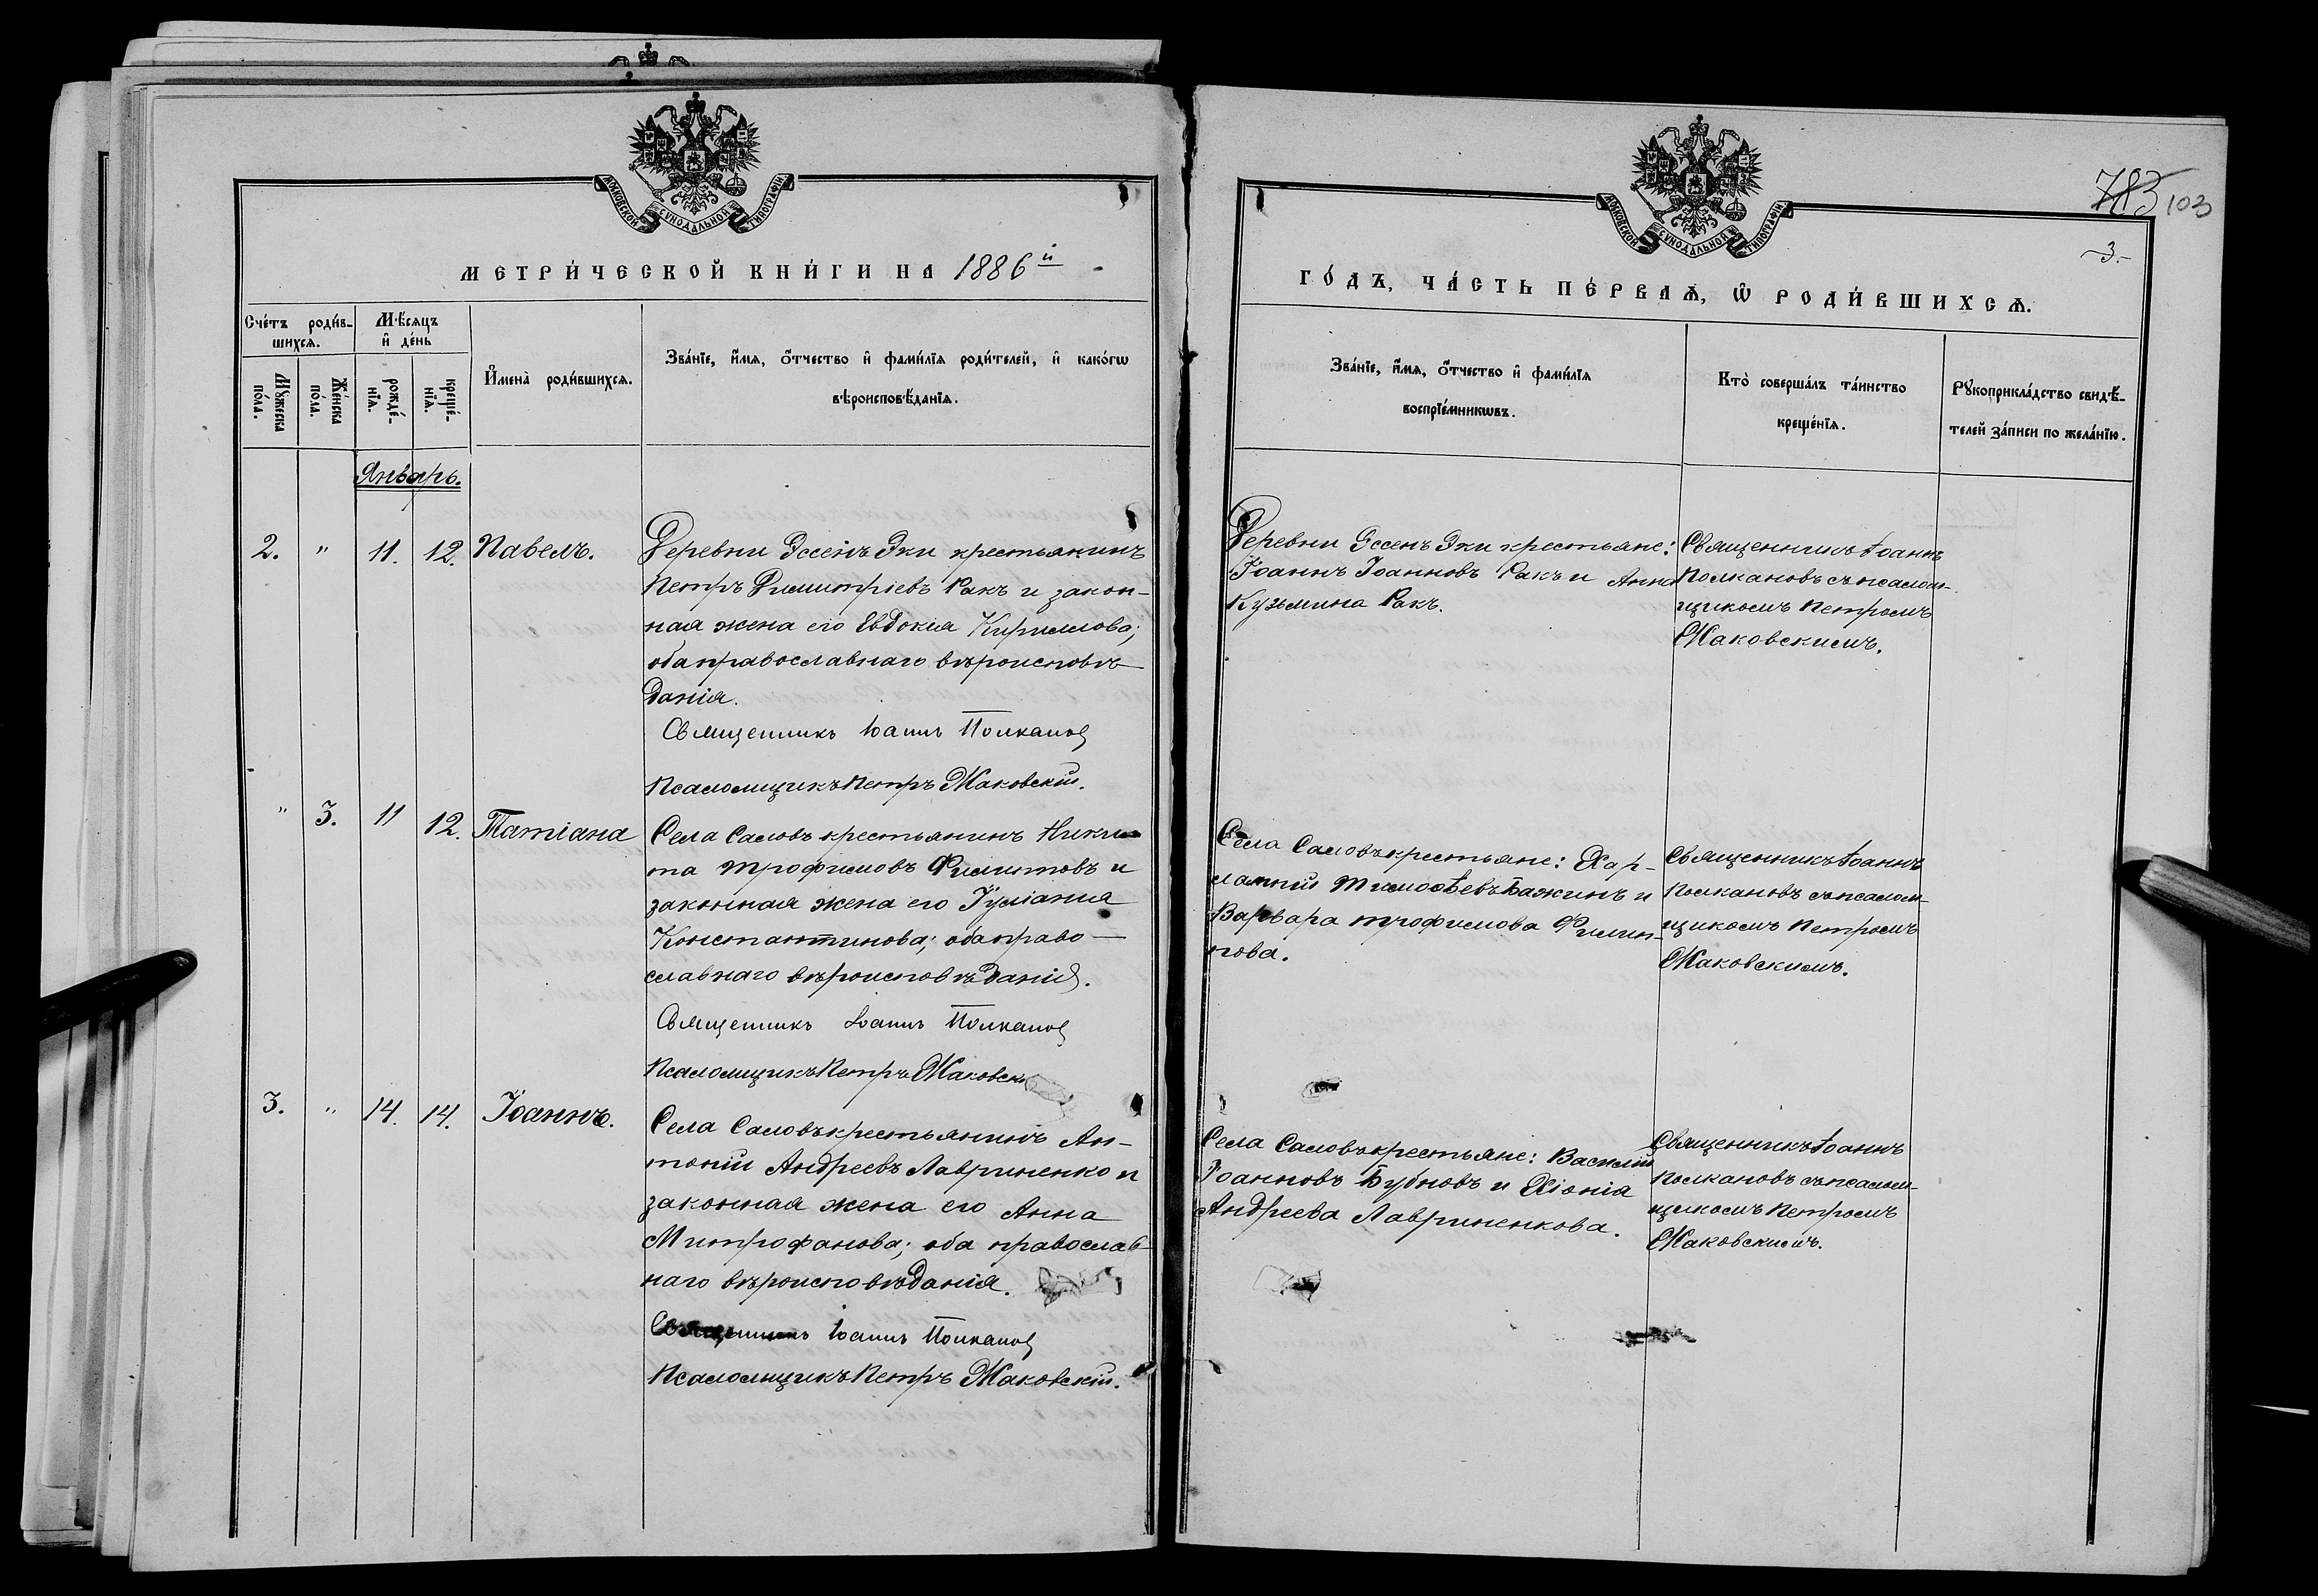 МОСКОВСКОЙ СУНОДАЛЬНОЙ ТИПОГРАФІИ
МЕТРИ́ЧЕСКОЙ КНИ́ГИ НА 1886й
Сче́тъ роди́в-
шихсѧ.
Мѣ́сѧцъ
и҆ де́нь
Мꙋ́жеска
по́ла.
Же́нска
по́ла.
рожде́-
нїѧ.
креще́-
нїѧ.
И҆мена̀ роди́вшихсѧ.
Зва́нїе, и҆́мѧ, о҆́тчество и҆ фами́лїѧ роди́телей, и҆ како́гѡ
вѣроисповѣ́данїѧ.
Январь.
2. " 11. 12. Павелъ.
Деревни Эссенъ Эки крестьянинъ
Петръ Димитріевъ Ракъ и закон-
ная жена его Евдокія Кириллова;
оба православнаго вѣроисповѣ-
данія.
Священникъ Іоаннъ Полкановъ
Псаломщикъ Петръ Жаковскій.
" 3. 11 12. Татіана
Села Саловъ крестьянинъ Ники-
та Трофимовъ Филиповъ и
законная жена его Іуліанія
Константинова; оба право-
славнаго вѣроисповѣданія.
Священникъ Іоаннъ Полкановъ
Псаломщикъ Петръ Жаковскі
3. " 14. 14. Іоаннъ.
Села Саловъ крестьянинъ Ан-
тоній Андреевъ Лавриненко и
законная жена его Анна
Митрофанова; оба православ-
наго вѣроисповѣданія.
Священникъ Іоаннъ Полкановъ
Псаломщикъ Петръ Жаковскій.
МОСКОВСКОЙ СУНОДАЛЬНОЙ ТИПОГРАФІИ
783 103
3.
ГО́ДЪ, ЧА́СТЬ ПЕ́РВАѦ, Ѡ҆ РОДИ́ВШИХСѦ.
Зва́нїе, и҆́мѧ, о҆́тчество и҆ фами́лїѧ
воспрїе́мникѡвъ.
Кто̀ соверша́лъ та́инство
креще́нїѧ.
Рꙋкоприкла́дство свидѣ́-
телей за́писи по жела́нїю.
Деревни Эссенъ Эки крестьяне:
Іоаннъ Іоанновъ Ракъ и Анна
Кузьмина Ракъ.
Священникъ Іоаннъ
Полкановъ съ псалом-
щикомъ Петромъ
Жаковскимъ.
Села Саловъ крестьяне: Хар-
лампій Тимоѳеевъ Бажинъ и
Варвара Трофимова Филип-
пова.
Священникъ Іоаннъ
Полкановъ съ псалом-
щикомъ Петромъ
Жаковскимъ.
Села Саловъ крестьяне: Василій
Іоанновъ Бубновъ и Хіонія
Андреева Лавриненкова.
Священникъ Іоаннъ
Полкановъ съ псалом-
щикомъ Петромъ
Жаковскимъ.